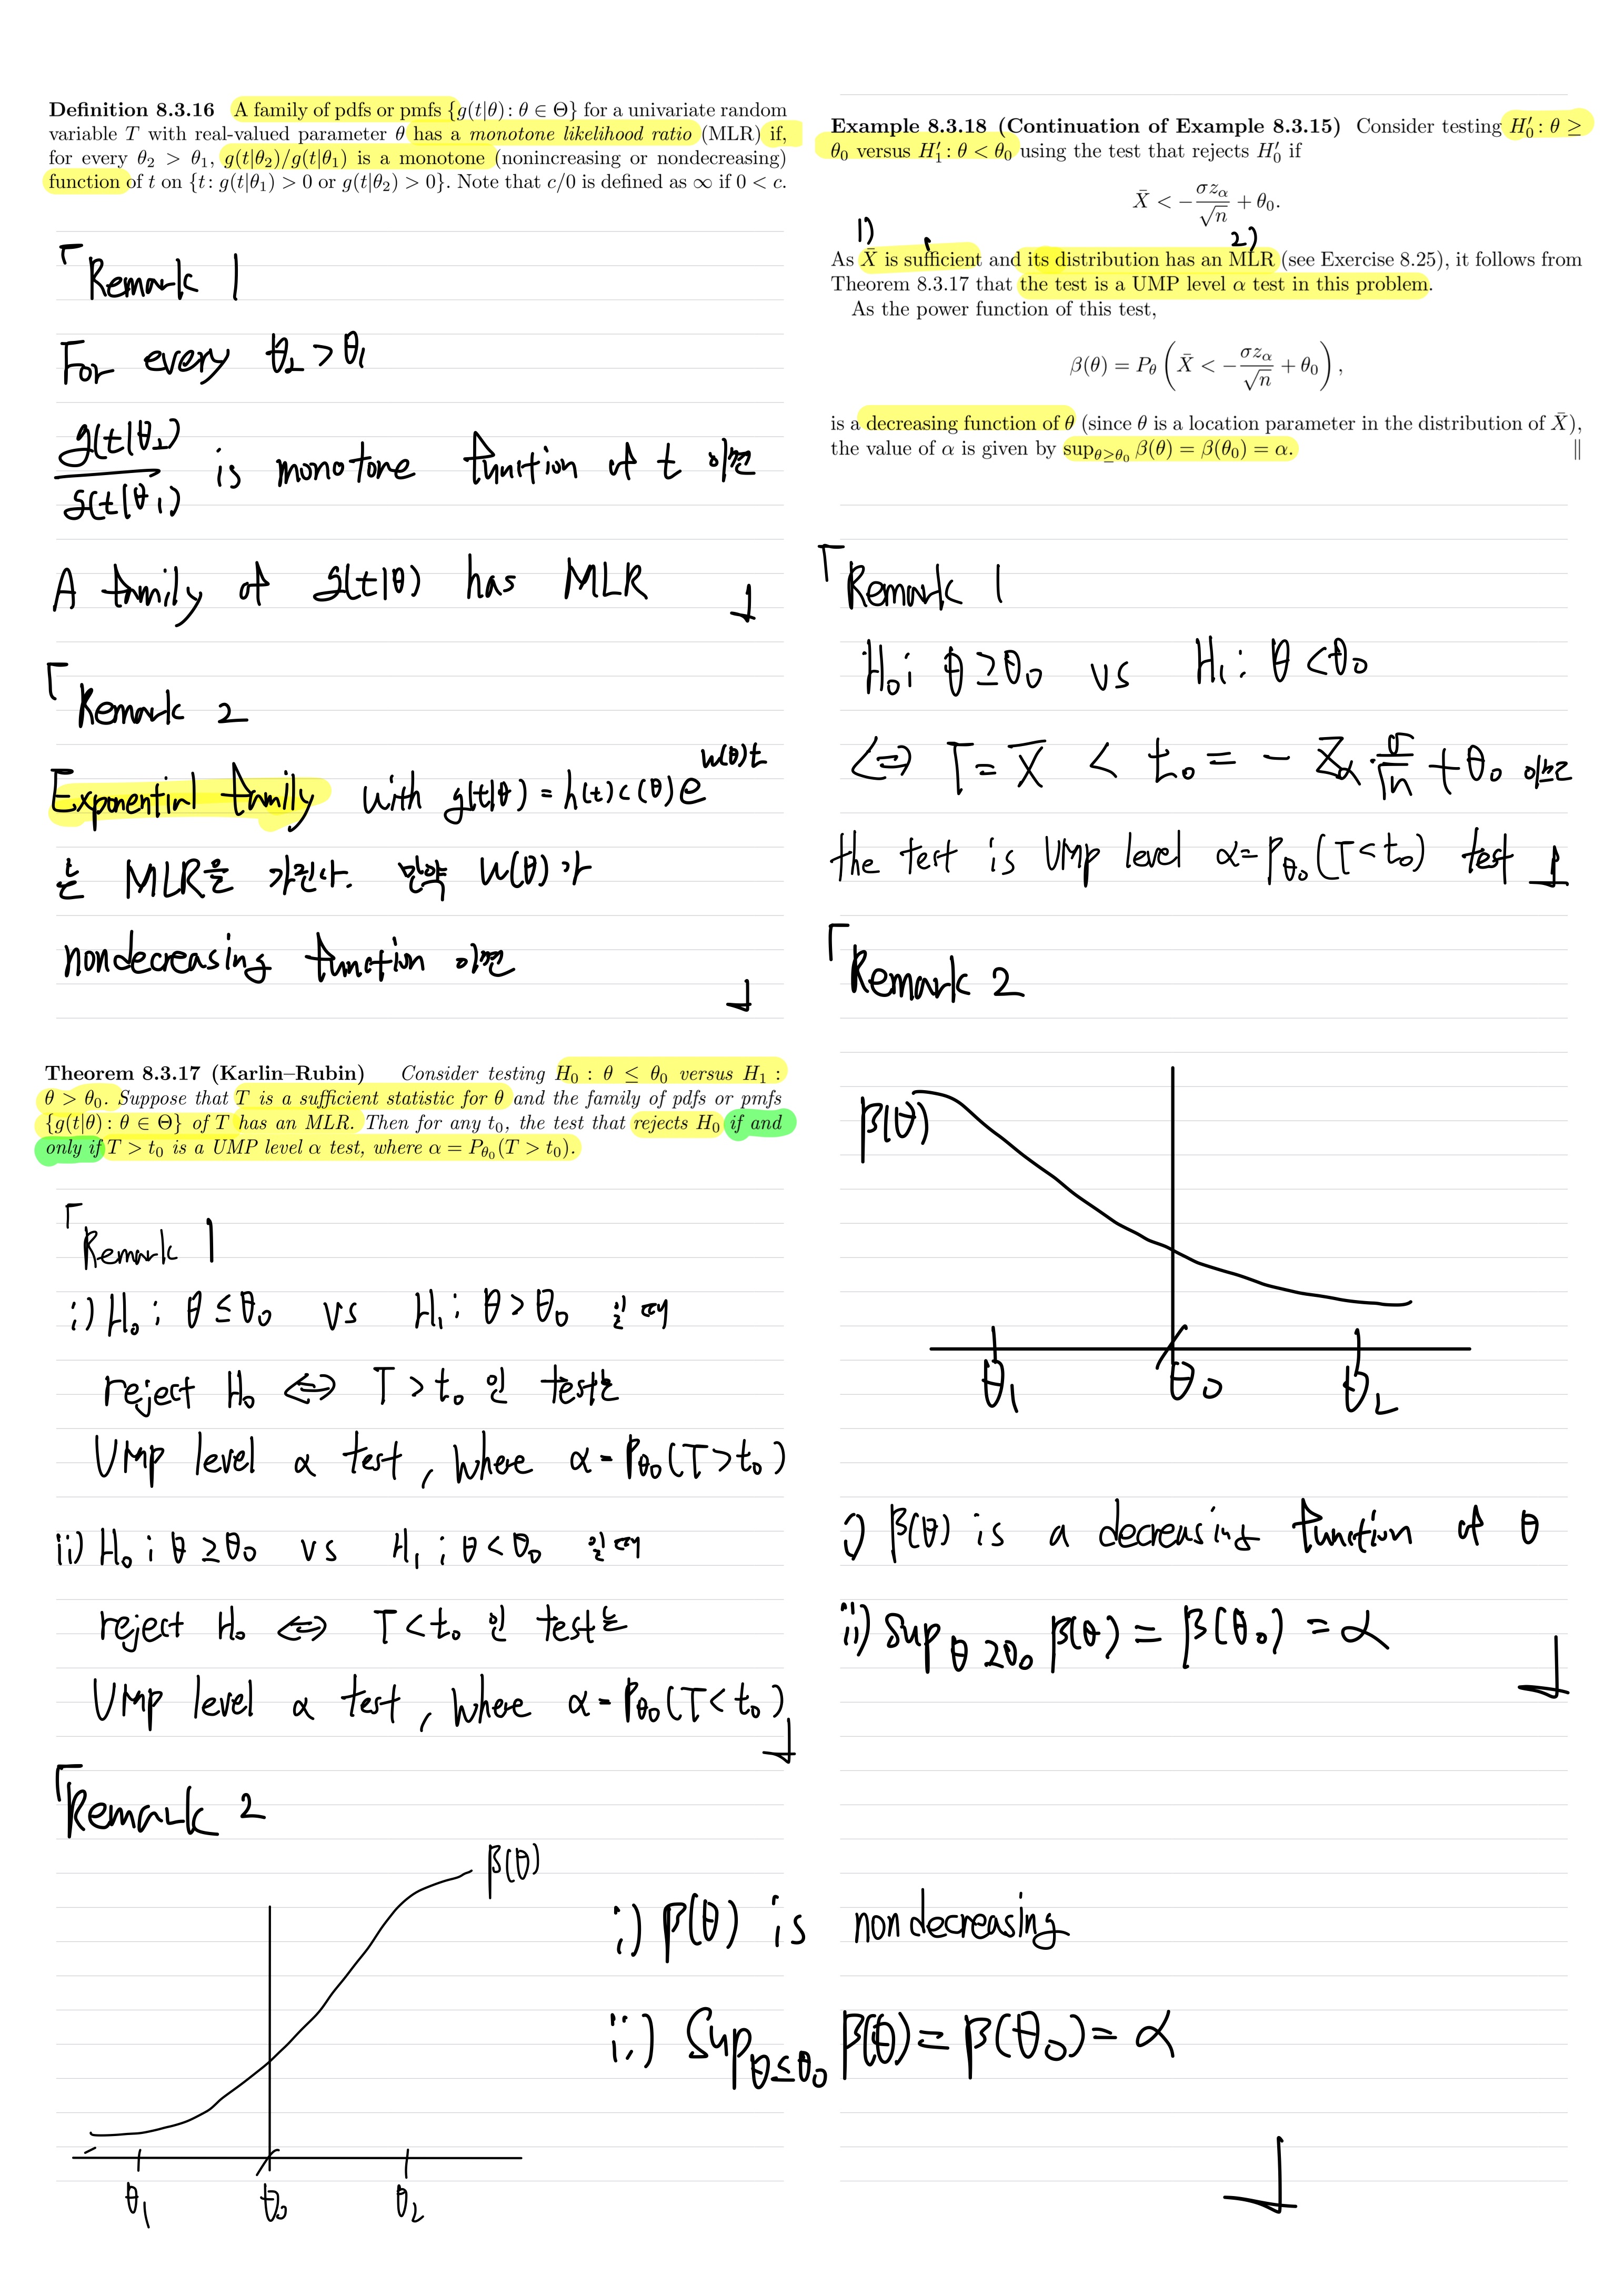 Definition 8.3.16 A family of pdfs or pmfs {g(t|θ): θ ∈ Θ} for a univariate random
variable T with real-valued parameter θ has a monotone likelihood ratio (MLR) if,
for every θ₂ > θ₁, g(t|θ₂)/g(t|θ₁) is a monotone (nonincreasing or nondecreasing)
function of t on {t: g(t|θ₁) > 0 or g(t|θ₂) > 0}. Note that c/0 is defined as ∞ if 0 < c.
「Remark 1
For every θ₂ > θ₁
g(t|θ₂)/g(t|θ₁) is monotone function of t 이면
A family of g(t|θ) has MLR 」
「Remark 2
Exponential family with g(t|θ) = h(t)c(θ)e^{w(θ)t}
는 MLR을 가진다. 만약 w(θ)가
nondecreasing function 이면
」
Theorem 8.3.17 (Karlin–Rubin) Consider testing H₀ : θ ≤ θ₀ versus H₁ :
θ > θ₀. Suppose that T is a sufficient statistic for θ and the family of pdfs or pmfs
{g(t|θ): θ ∈ Θ} of T has an MLR. Then for any t₀, the test that rejects H₀ if and
only if T > t₀ is a UMP level α test, where α = P_{θ₀}(T > t₀).
「Remark 1
i) H₀ : θ ≤ θ₀ vs H₁ : θ > θ₀ 일 때
reject H₀ ⟺ T > t₀ 인 test는
UMP level α test, where α = P_{θ₀}(T > t₀)
ii) H₀ : θ ≥ θ₀ vs H₁ : θ < θ₀ 일 때
reject H₀ ⟺ T < t₀ 인 test는
UMP level α test, where α = P_{θ₀}(T < t₀)
」
「Remark 2
β(θ)
θ₁ θ₀ θ₂
i) β(θ) is nondecreasing
ii) Sup_{θ≤θ₀} β(θ) = β(θ₀) = α
」
Example 8.3.18 (Continuation of Example 8.3.15) Consider testing H₀′: θ ≥
θ₀ versus H₁′: θ < θ₀ using the test that rejects H₀′ if
X̄ < −σz_α/√n + θ₀.
1) 2)
As X̄ is sufficient and its distribution has an MLR (see Exercise 8.25), it follows from
Theorem 8.3.17 that the test is a UMP level α test in this problem.
As the power function of this test,
β(θ) = P_θ (X̄ < −σz_α/√n + θ₀),
is a decreasing function of θ (since θ is a location parameter in the distribution of X̄),
the value of α is given by sup_{θ≥θ₀} β(θ) = β(θ₀) = α. ‖
「Remark 1
H₀ : θ ≥ θ₀ vs H₁ : θ < θ₀
⟺ T = X̄ < t₀ = − Z_α · σ/√n + θ₀ 이면
the test is UMP level α = P_{θ₀}(T < t₀) test 」
「Remark 2
β(θ)
θ₁ θ₀ θ₂
i) β(θ) is a decreasing function of θ
ii) Sup_{θ≥θ₀} β(θ) = β(θ₀) = α
」